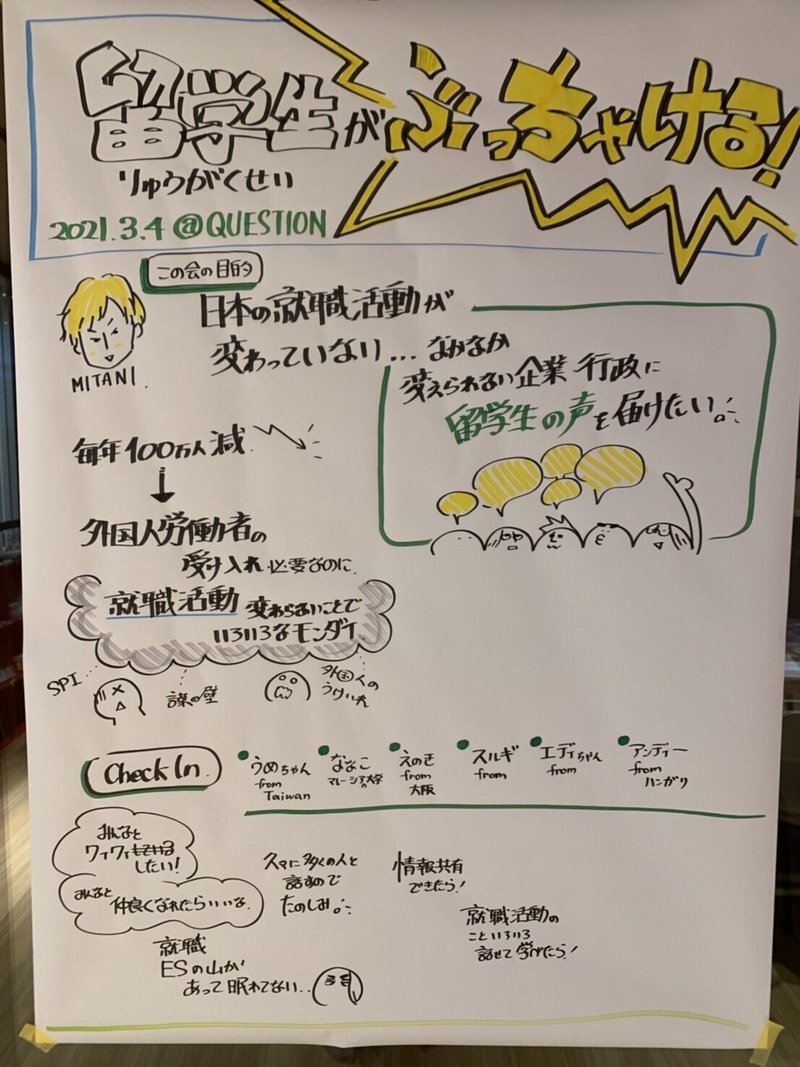 留学生がぶっちゃける!
りゅうがくせい
2021.3.4 @QUESTION
この会の目的
日本の就職活動が
変わっていない...なかなか
変えられない企業・行政に
留学生の声を届けたい。
MITANI.
毎年100万人減
外国人労働者の
受け入れ必要なのに、
就職活動 変わらないことで
いろいろなモンダイ
SPI...
言葉の壁
外国人の
うけいれ
Check In.
うめちゃん
from
Taiwan
ななこ
マレーシア大学
えのき
from
大阪
スルギ
from
エディちゃん
from
アンディー
from
ハンガリ
みんなと
ワイワイ
したい!
みんなと
仲良くなれたらいいな。
久々に多くの人と
話すので
たのしみ。
情報共有
できたら!
就職活動の
こといろいろ
話せて学べたら!
就職
ESの山が
あって眠れてない...